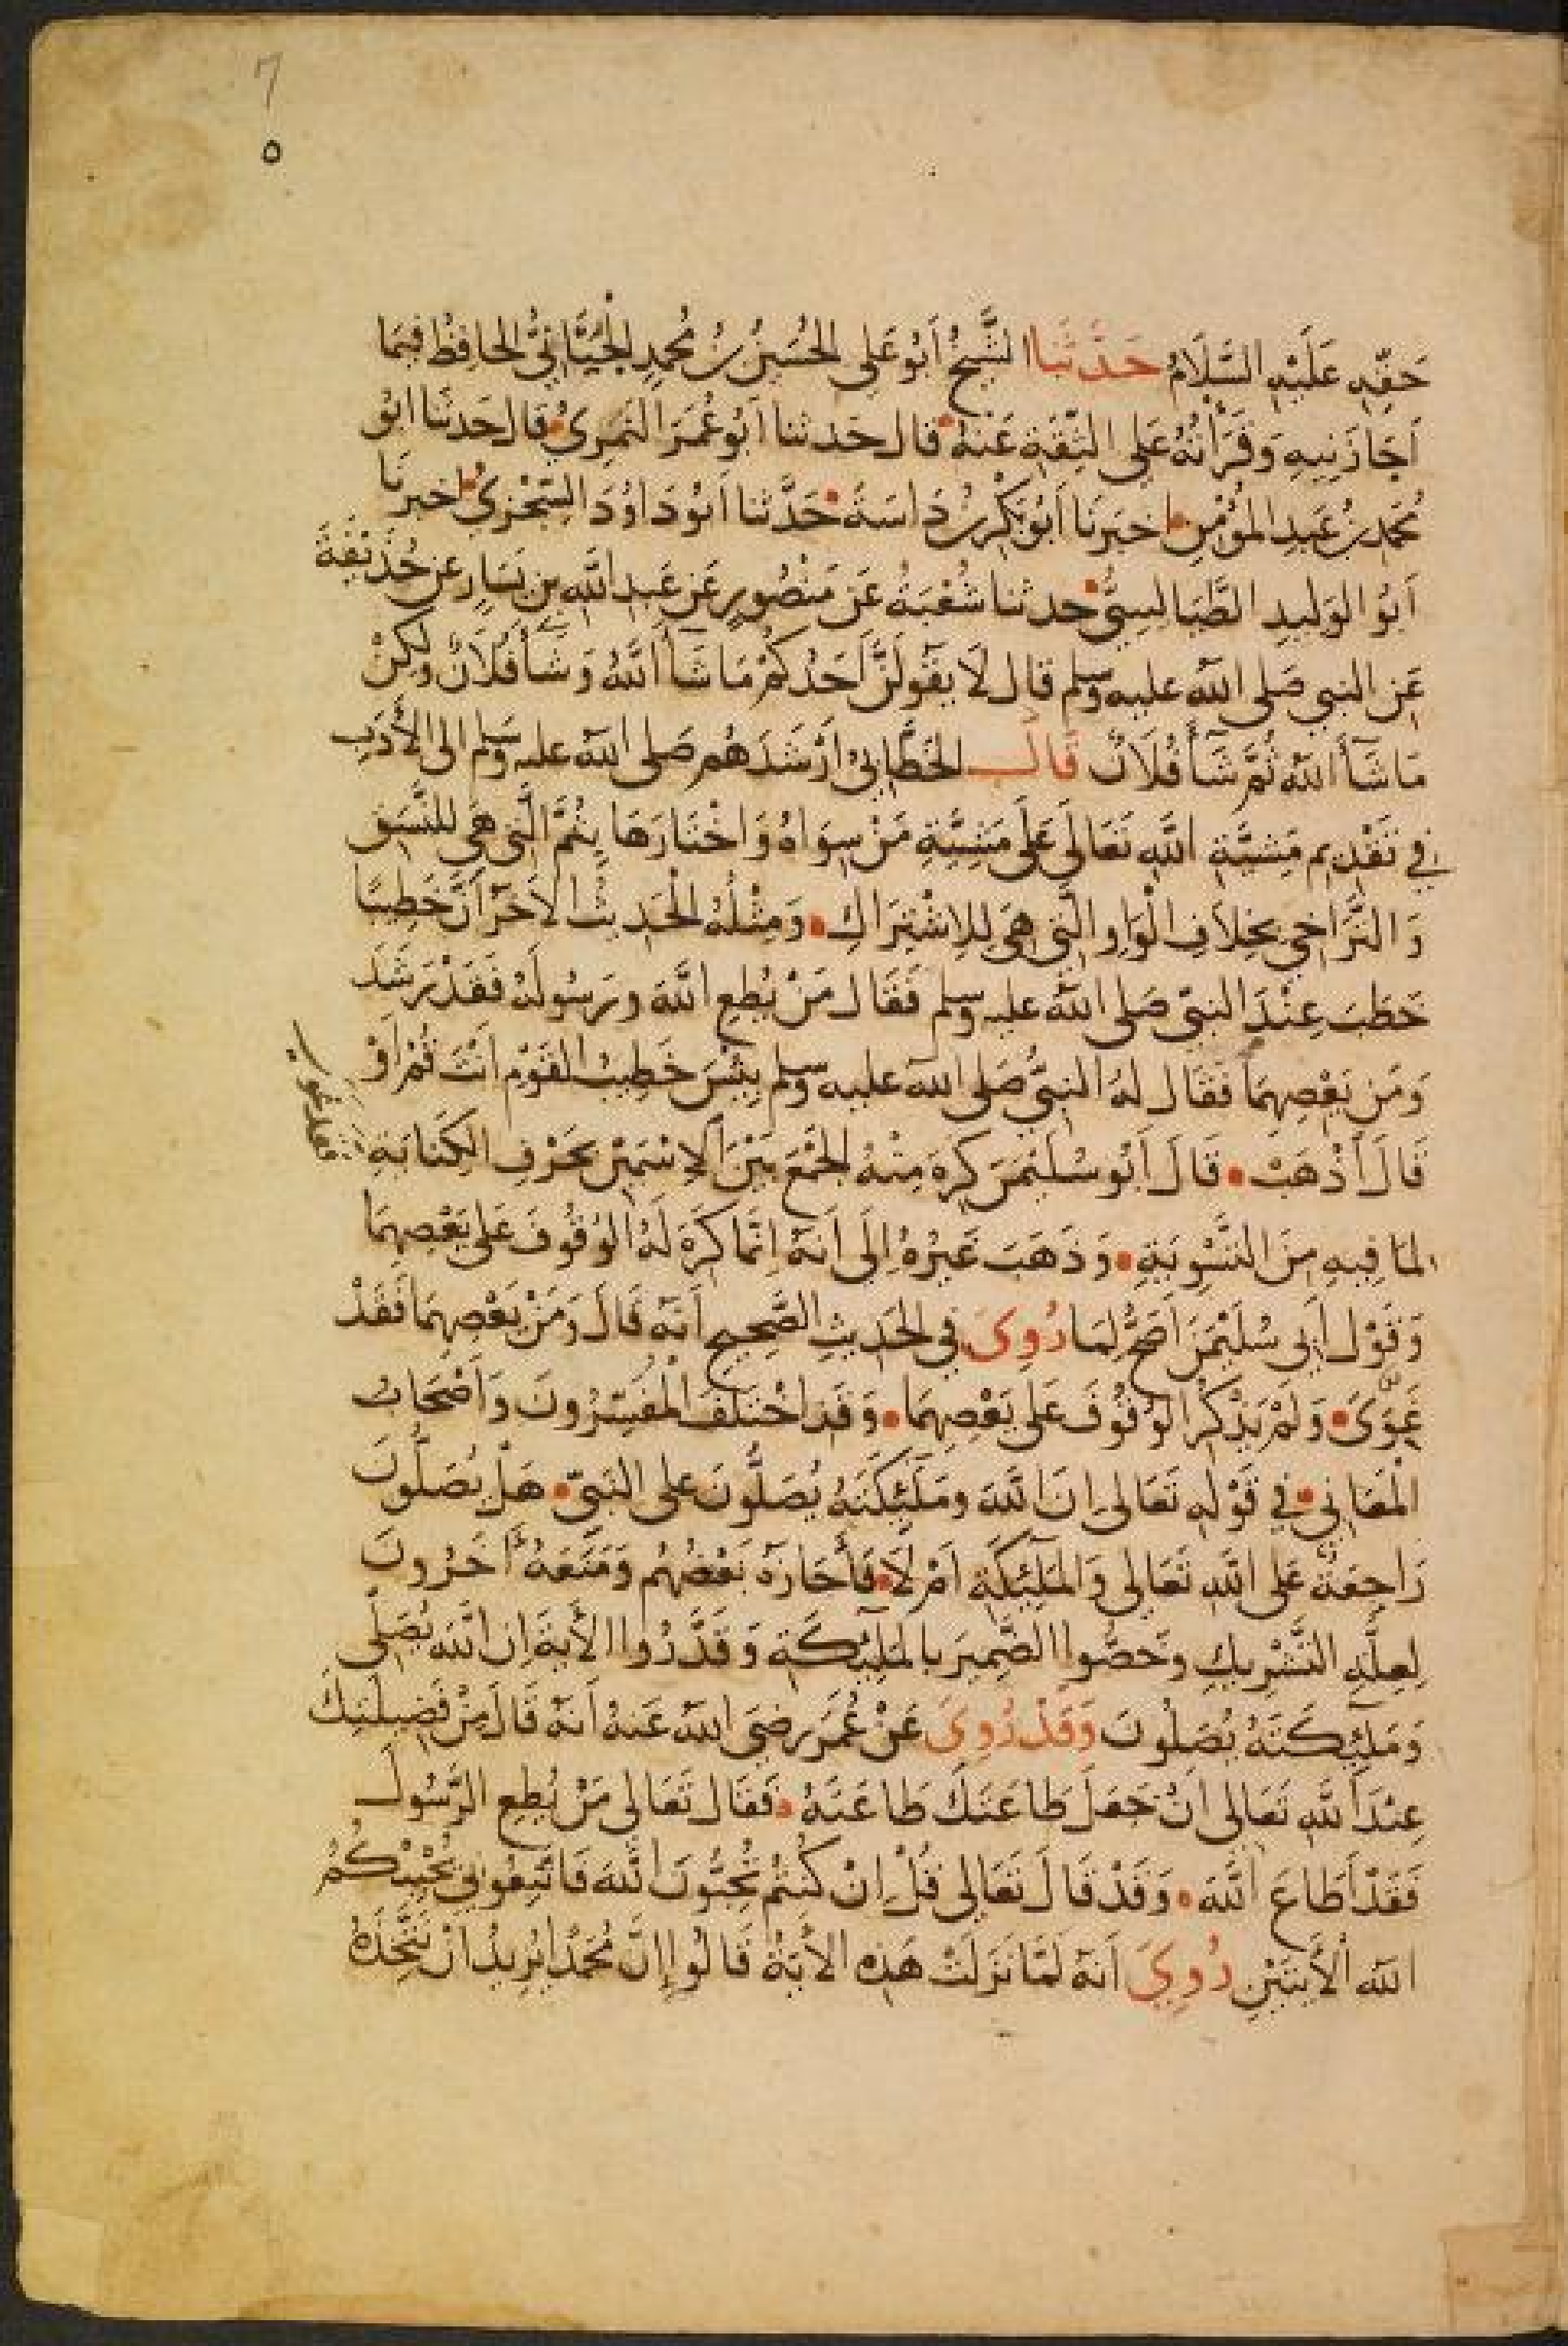 7
٥
حَقِّهِ عَلَيْهِ السَّلَامُ حَدَّثَنَا الشَّيْخُ أَبُو عَلِى الحُسَيْنُ بنُ مُحمدٍ الْجَيَّانِيُّ الحافِظُ فيمَا
أَجَازَنِيهِ وَقَرَأْتُهُ عَلى الثِّقَةِ عَنْهُ قال حَدثنا أبُو عُمَرَ النَّمِرِىُّ قال حَدثَنا ابُو
مُحَمدِ بنُ عَبدِ المؤْمِنِ اخبَرنَا أَبُو بَكْرِ بنُ دَاسَةَ حَدَّثنا أبُو دَاوُدَ السِّجْزِيُّ اخبرنَا
أَبُو الوَلِيدِ الطَّيَالِسِىُّ حدثنا شُعْبَةُ عَن مَنْصُورٍ عَن عَبدِ اللّهِ بن يَسَارٍ عن حُذَيْفَةَ
عَن النبيِ صَلى اللهُ عليه وسلم قال لَا يقُولَنَّ أَحَدُكُمْ مَا شَآءَ اللّهُ وَشَآءَ فُلَانٌ ولكِنْ
مَا شَآءَ اللهُ ثُمَّ شَآءَ فُلَانٌ قَالَ الخَطَّابِىُّ أَرْشَدَهُم صَلى الله عليه وسلم الى الأَدَبِ
فِي تَقْدِيمِ مَشِيَّةِ اللّهِ تَعَالَى عَلَى مَشِيَّةِ مَنْ سِوَاهُ وَاخْتَارَهَا بِثُمَّ الَّتى هِيَ للنَّسَقِ
وَالتَّرَاخِي بخِلَافِ الْوَاوِ الَّتِى هِىَ لِلِاشْتِرَاكِ وَمِثْلُهُ الْحَدِيثُ الآخَرُ أَنَّ خَطِيبًا
خَطَبَ عِنْدَ النبىِّ صَلى اللهُ عليه وسلم فَقَال مَنْ يُطِعِ اللّهَ ورَسُولَهُ فَقَدْ رَشَدَ
وَمَن يَعْصِهِمَا فَقَال لهُ النبىُّ صَلى الله عليه وسلم بِئْسَ خَطِيبُ القَوْمِ انْتَ قُمْ أَوْ
قَالَ اذْهَبْ قَالَ أَبُو سُلَيْمَنَ كَرِهَ مِنْهُ الجَمْعَ بَيْنَ الِاسْمَيْنِ بحَرْفِ الكِنَايَةِ
لمَا فِيهِ مِنَ التَّسْوِيَةِ وَذَهَبَ غَيرُهُ إِلَى أَنهُ إنَّمَا كَرِهَ لَهُ الوُقُوفَ عَلى يَعْصِهِمَا
وَقَوْلُ أَبِى سُلَيْمَنَ أَصَحُّ لِمَا رُوِىَ فِي الحَدِيثِ الصَّحِيحِ أَنَّهُ قَالَ وَمَنْ يَعْصِهِمَا فَقَدْ
غَوَى وَلَمْ يَذْكُرِ الوُقُوفَ عَلى يَعْصِهِمَا وَقَدِ اخْتَلَفَ الْمفَسِّرُونَ وَأَصْحَابُ
الْمَعَانِي فِي قَوْلِهِ تَعَالى ان اللّهَ ومَلئِكَتَهُ يُصَلُّونَ على النبىِّ هَلْ يُصَلُّونَ
رَاجِعَةٌ عَلى اللّهِ تَعَالى وَالمَلئِكَةِ أَمْ لَا فَأَجَازَهُ بَعْضُهُم وَمَنَعَهُ آخَرُونَ
لِعِلَّةِ التَّشْرِيكِ وَخَصُّوا الضَّمِيرَ بالمَلئِكَةِ وَقَدَّرُوا الآيَةَ إن اللّهَ يُصَلِّى
وَمَلئِكَتَهُ يُصَلُّونَ وَقَدْ رُوِىَ عَنْ عُمَرَ رضِىَ الله عَنهُ أنهُ قَالَ مِنْ فَضِيلَتِكَ
عِنْدَ اللّهِ تَعَالى انْ جَعَلَ طَاعَتَكَ طَاعَتَهُ فَقَال تَعَالى مَنْ يُطِعِ الرَّسُولَ
فَقَدْ أَطَاعَ اللّهَ وَقَدْ قَالَ تَعَالى قُلْ إنْ كُنتُم تُحِبُّونَ اللّهَ فَاتَّبِعُونِي يُحْبِبْكُمُ
الله الْآيَتَيْنِ رُوِيَ أَنهُ لمَّا نَزَلَتْ هَذه الآيَةُ قَالُوا إنَّ مُحَمَّدًا يُرِيدُ انْ نَتَّخِذَهُ